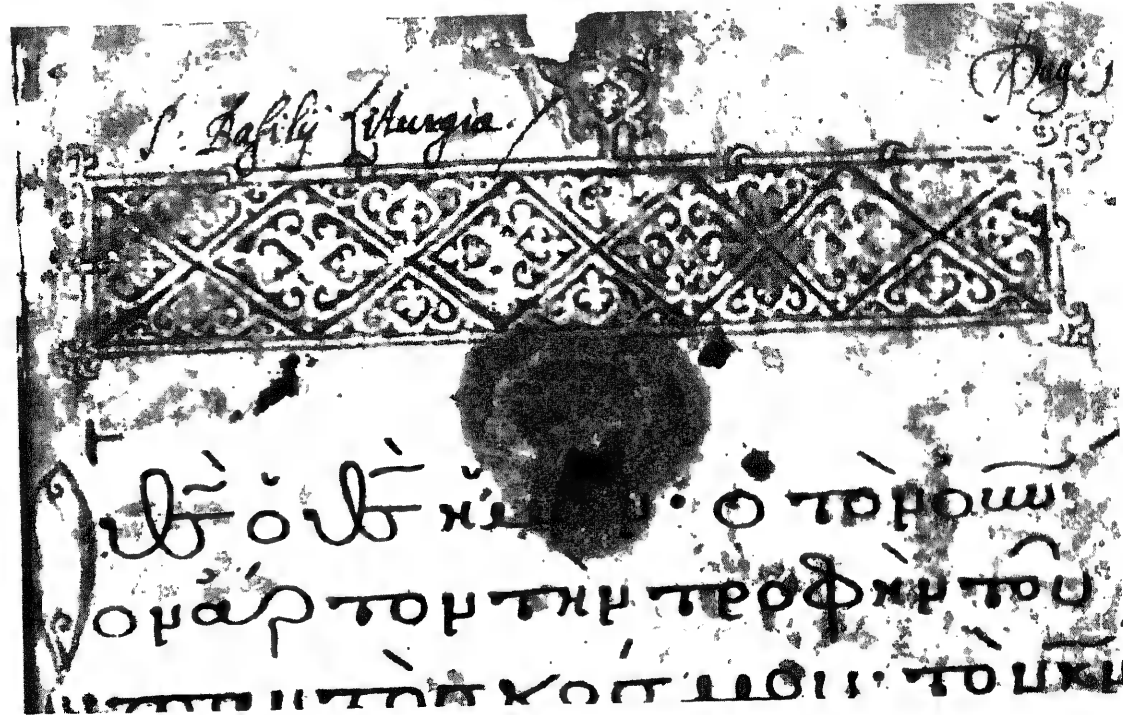 S. Basilij Liturgia. Pag. 1
Ὁ θς ὁ θς · ὁ τὸν οὐνι
ον ἄρτον τὴν τροφὴν τοῦ
παντὸς κόσμου· τὸν κν